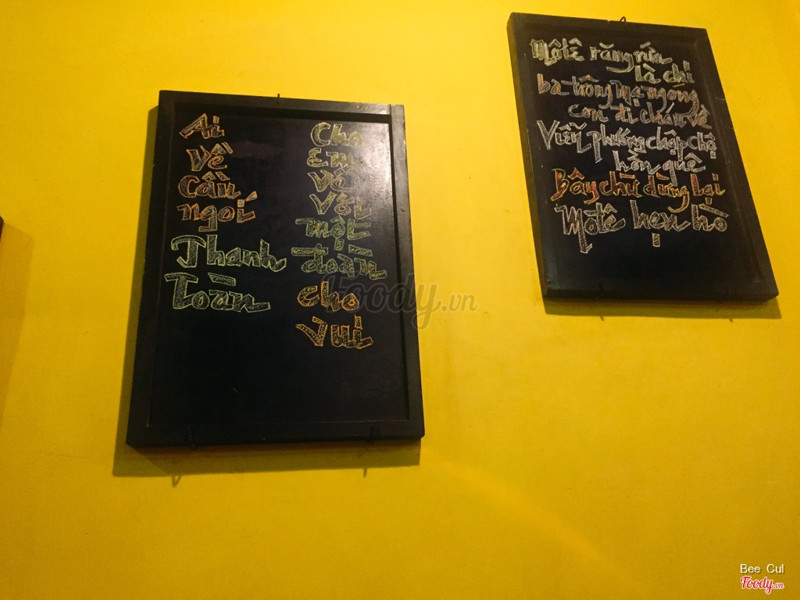 Ai
Về
Cầu
ngói
Thanh
Toàn
Cho
Em
Về
Với
một
đoàn
cho
vui
Môtê răng nứa
là chi
bà trông mạ ngóng
con đi chưa về
Viễn phương chấp chợ
hồn quê
Bây chừ dừng lại
Môtê hẹn hò
Foody.vn
Bee Cul
Foody.vn